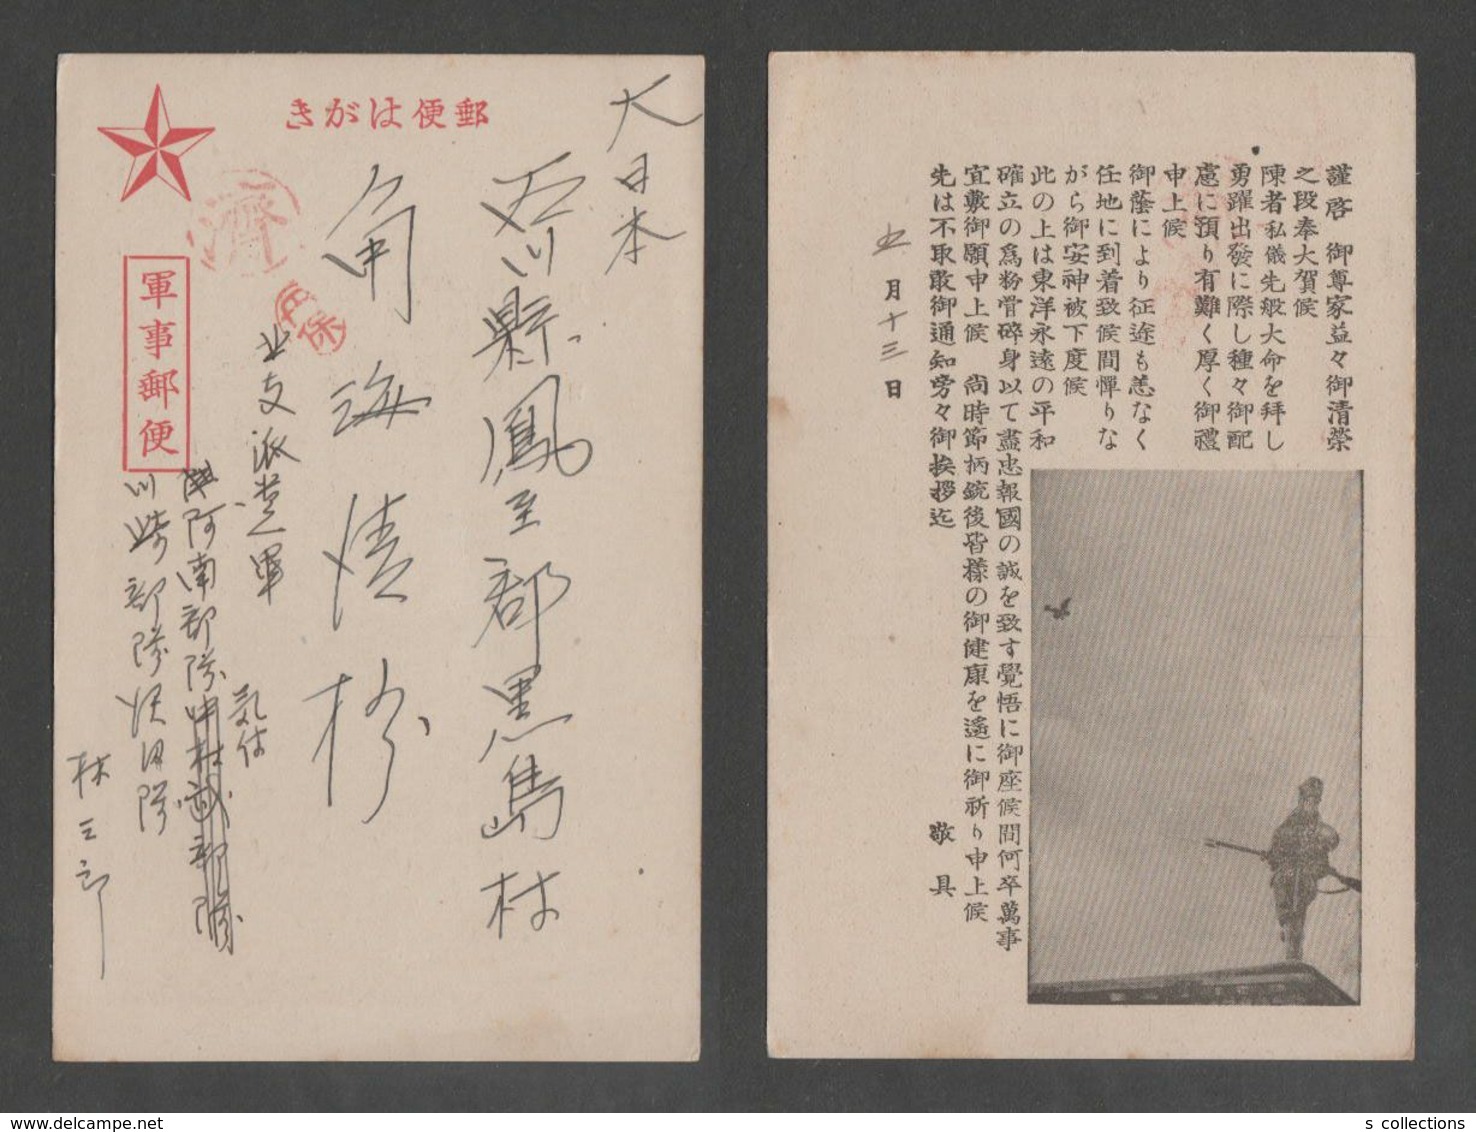 郵便はがき
軍事郵便
濟
大日本
石川縣鳳至郡黒島村
角海清松
北支派遣軍
気付
阿南部隊中村武部隊
川崎部隊沢田隊
林三郎
謹啓 御尊家益々御清榮
之段奉大賀候
陳者私儀先般大命を拜し
勇躍出發に際し種々御配
慮に預り有難く厚く御禮
申上候
御蔭により征途も恙なく
任地に到着致候間憚りな
がら御安神被下度候
此の上は東洋永遠の平和
確立の爲粉骨碎身以て盡忠報國の誠を致す覺悟に御座候間何卒萬事
宜敷御願申上候 尚時節柄銃後皆樣の御健康を遙に御祈り申上候
先は不取敢御通知旁々御挨拶迄 敬具
五月十三日
s collections